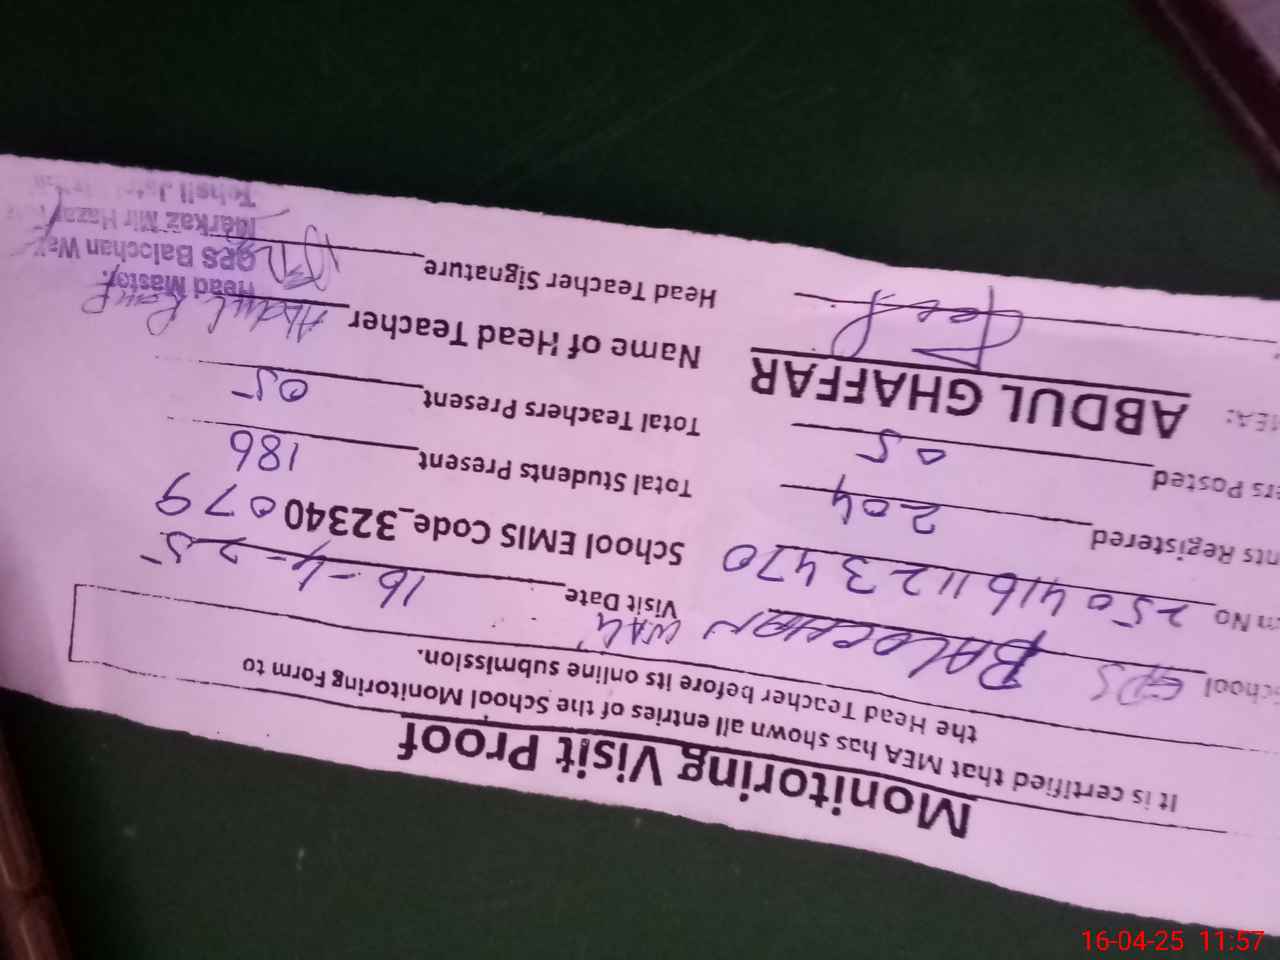 Monitoring Visit Proof
It is certified that MEA has shown all entries of the School Monitoring Form to
the Head Teacher before its online submission.
chool GPS BALOCHAN WALA Visit Date 16-4-25
m No 250416112 3470 School EMIS Code_32340079
nts Registered 204 Total Students Present 186
rs Posted 05 Total Teachers Present 05
MEA: ABDUL GHAFFAR Name of Head Teacher Abdul Rauf
Head Teacher Signature
Head Master
GPS Balochan Wa
Markaz Mir Haza
Tehsil
16-04-25 11:57